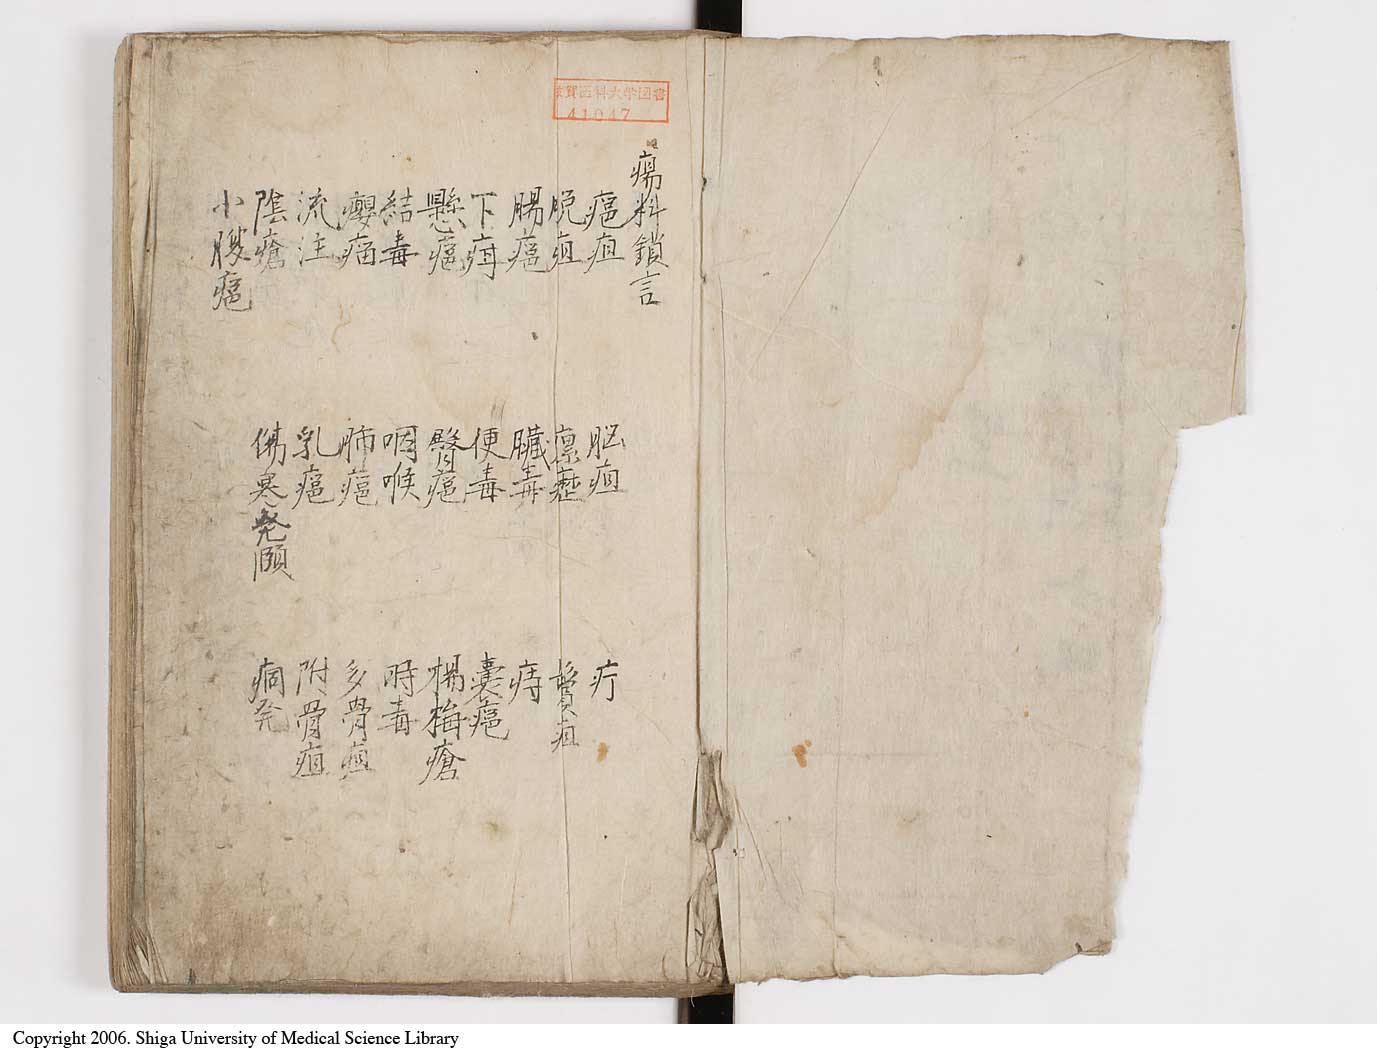 滋賀医科大学図書
41047
瘍科鎖言
癰疽 脳疽 疔
脱疽 瘰癧 鬢疽
腸癰 臓毒 痔
下疳 便毒 嚢癰
懸癰 臀癰 楊梅瘡
結毒 咽喉 時毒
癭瘤 肺癰 多骨疽
流注 乳癰 附骨疽
陰瘡 傷寒発頤
小腹癰
Copyright 2006. Shiga University of Medical Science Library